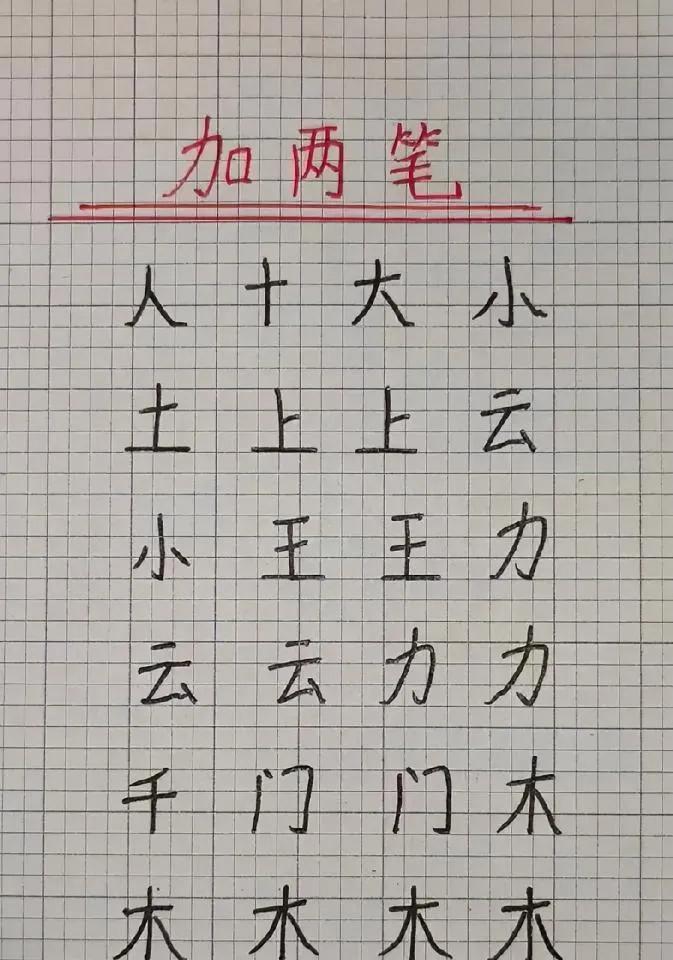 加两笔
人 十 大 小
土 上 上 云
小 王 王 力
云 云 力 力
千 门 门 木
木 木 木 木